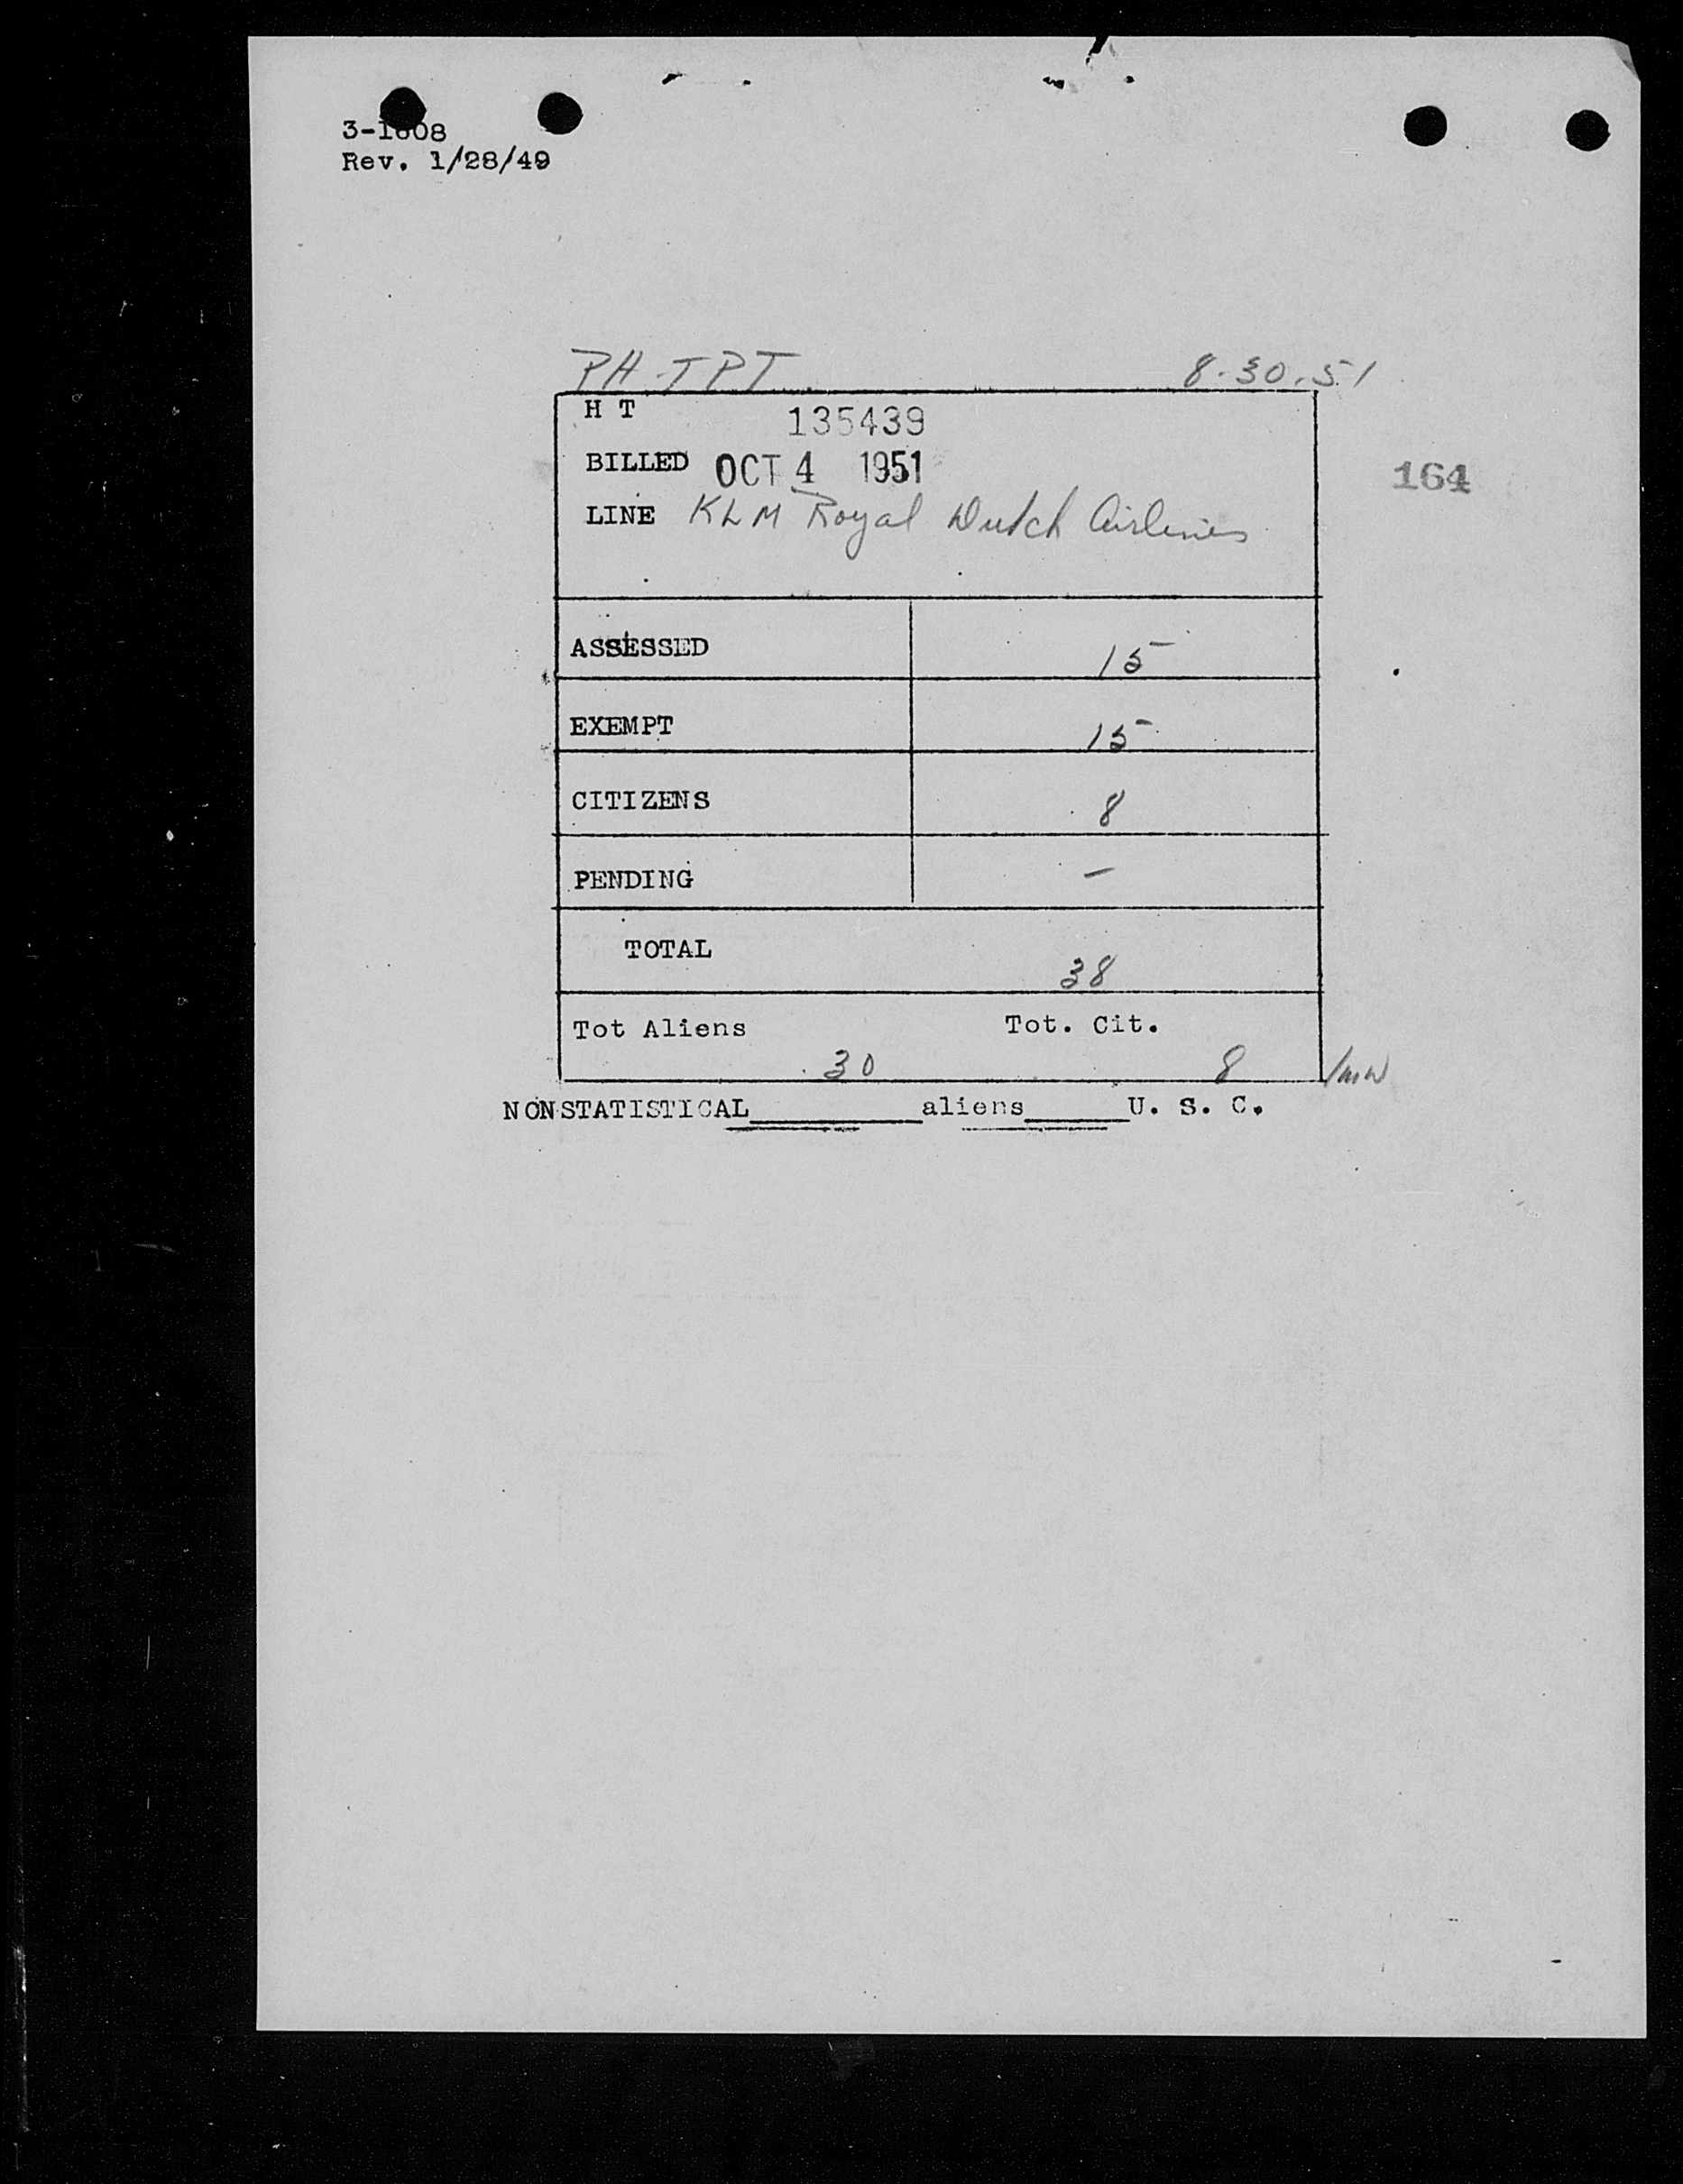 3-1608
Rev. 1/28/49
PH-TPT 8-30-51
H T 135439
BILLED OCT 4 1951
164
LINE KLM Royal Dutch Airlines
ASSESSED 15
EXEMPT 15
CITIZENS 8
PENDING -
TOTAL 38
Tot Aliens Tot. Cit.
30 8 /mw
NONSTATISTICAL________aliens_____U. S. C.